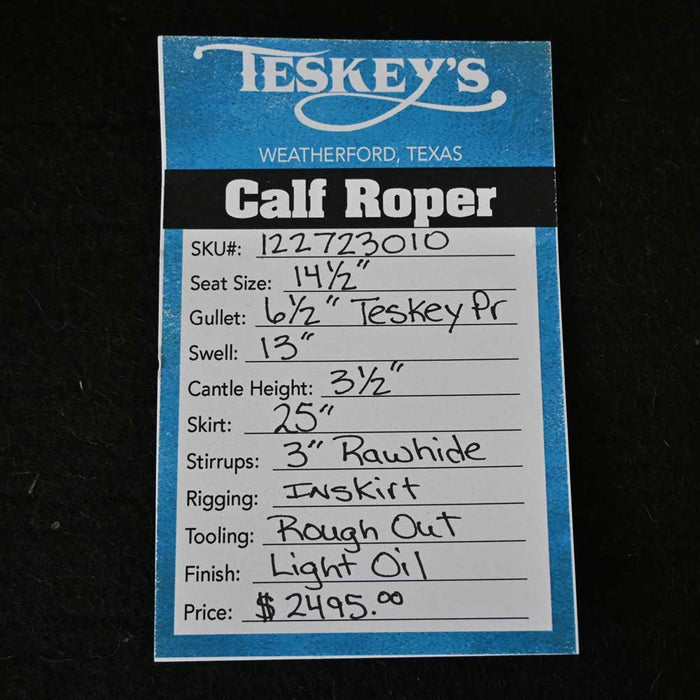 TESKEY'S
WEATHERFORD, TEXAS
Calf Roper
SKU#: 122723010
Seat Size: 14½"
Gullet: 6½" Teskey Pr
Swell: 13"
Cantle Height: 3½"
Skirt: 25"
Stirrups: 3" Rawhide
Rigging: INskirt
Tooling: Rough Out
Finish: Light Oil
Price: $2495.00